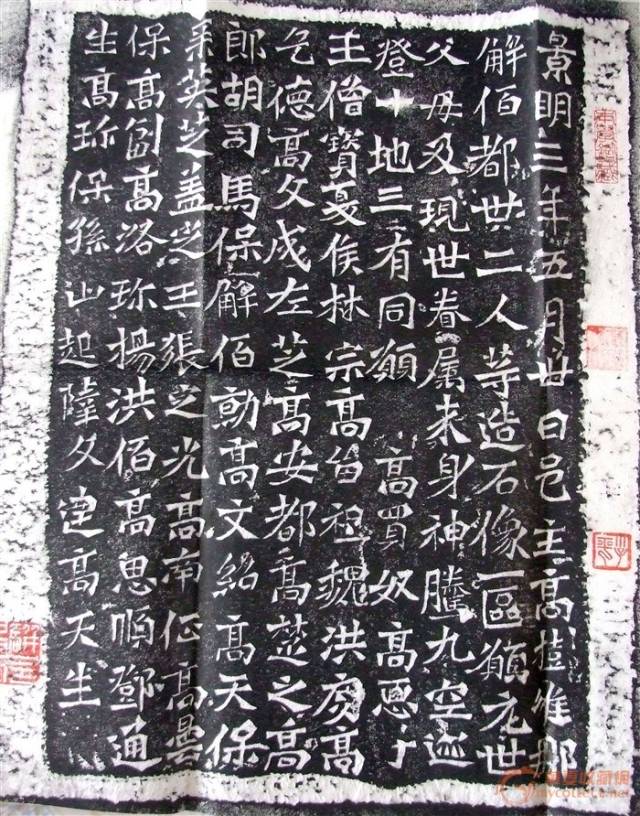 景明三年五月卅日邑主高樹維那
解佰都卅二人等造石像一區願元世
父母及現世眷属来身神騰九空迹
登十地三有同願 高買奴高惡子
王僧寳夏侯林宗高留祖魏洪度高
乞德高文成左芝高安都高楚之高
郎胡司馬保解佰勍高文紹高天保
孫英芝盖定王張定光高南征高曇
保高副高洛珎楊洪佰高思順鄧通
生高珎保孫山起薩文達高天生